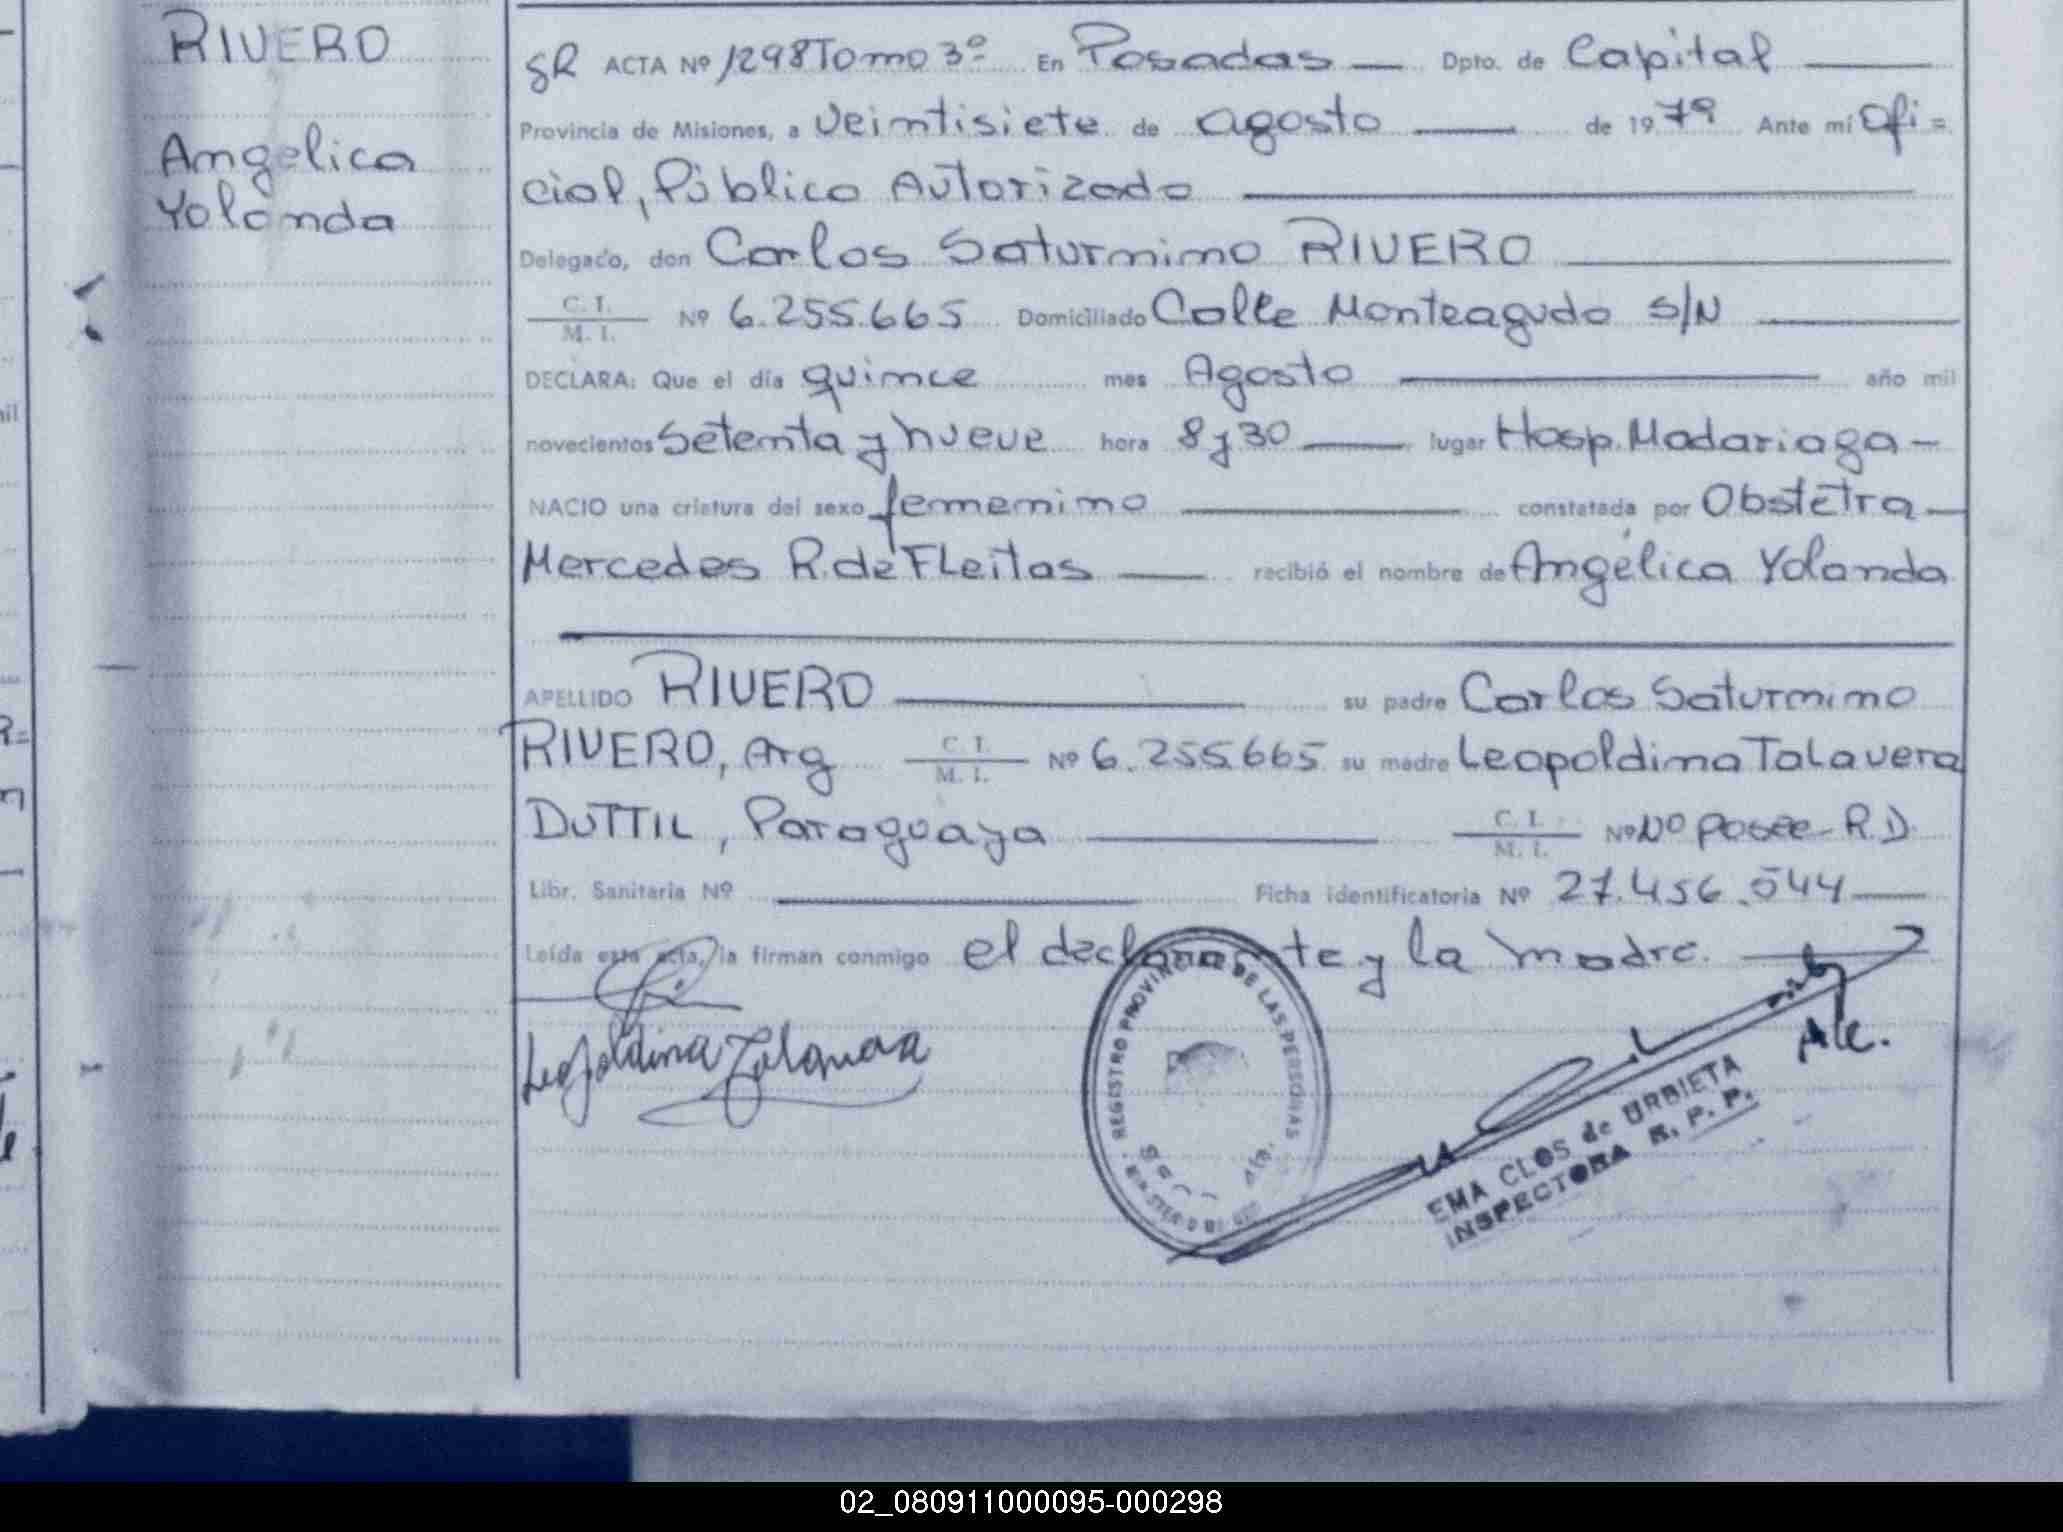 RIVERO
Angelica
Yolanda
SR ACTA Nº 1298 Tomo 3º En Posadas Dpto. de Capital
Provincia de Misiones, a veintisiete de agosto de 1979 Ante mí Ofi=
cial, Público Autorizado
Delegado, don Carlos Saturnino RIVERO
C. I. / M. I. Nº 6.255.665 Domiciliado Calle Monteagudo S/N
DECLARA: Que el día quince mes Agosto año mil
novecientos setenta y nueve hora 8 y 30 lugar Hosp. Madariaga -
NACIO una criatura del sexo femenino constatada por Obstetra
Mercedes R. de FLeitas recibió el nombre de Angélica Yolanda
APELLIDO RIVERO su padre Carlos Saturnino
RIVERO, Arg C. I. / M. I. Nº 6.255.665 su madre Leopoldina TaLavera
DUTTIL, Paraguaya C. I. / M. I. Nº No posee - R.D.
Libr. Sanitaria Nº Ficha identificatoria Nº 27.456.544
Leída esta acta, la firman conmigo el declarante y la madre.
Leopoldina Talavera
REGISTRO PROVINCIAL DE LAS PERSONAS
EMA CLOS de URBIETA
INSPECTORA R. P. P.
02_080911000095-000298